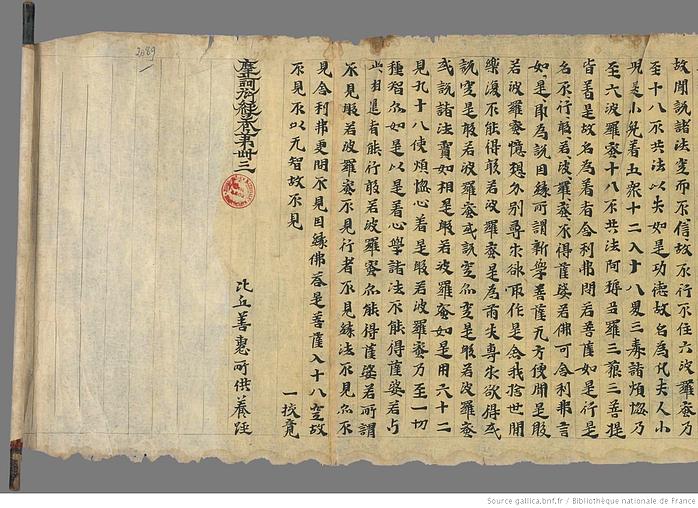 故聞說諸法空而不信故不行不住六波羅蜜乃
至十八不共法以失如是功德故名為凡夫人小
兒是小兒著五衆十二入十八界三毒諸煩惱乃
至六波羅蜜十八不共法阿耨多羅三藐三菩提
皆著是故名為著者舍利弗問若菩薩如是行是
名不行般若波羅蜜不得薩婆若佛可舍利弗言
如是即為說因緣所謂新學菩薩无方便聞是般
若波羅蜜憶想分別尋求欲取作是念我捨世間
樂復不能得般若波羅蜜是為兩失專求欲得或
說空是般若波羅蜜或說空亦空是般若波羅蜜
或說諸法實如相是般若波羅蜜如是用六十二
見九十八使煩惱心著是般若波羅蜜乃至一切
種智亦如是以是著心學諸法不能得薩婆若与
此相違者能行般若波羅蜜亦能得薩婆若所謂
不見般若波羅蜜不見行者不見緣法不見亦不
見舍利弗更問不見因緣佛答是菩薩入十八空故
不見不以无智故不見 一挍竟
摩訶衍經卷第卌三 比丘善惠所供養經
2089
Source gallica.bnf.fr / Bibliothèque nationale de France